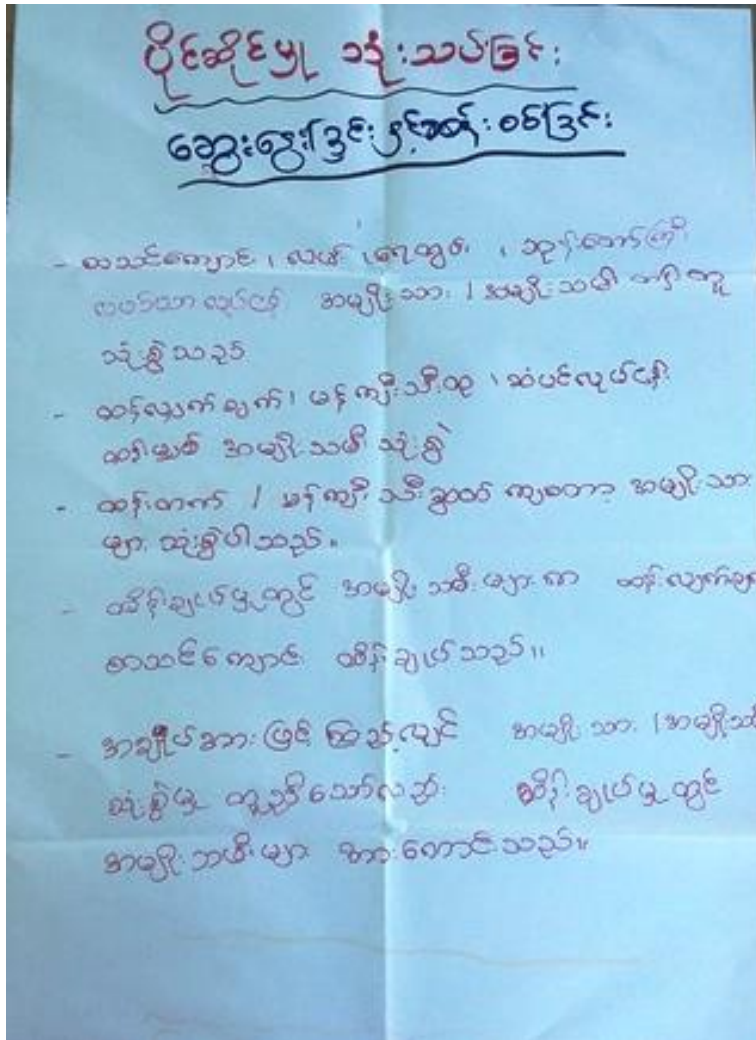 ပိုင်ဆိုင်မှု သုံးသပ်ခြင်း
ဆွေးနွေးခြင်းနှင့်ဆန်းစစ်ခြင်း
- စာသင်ကျောင်း၊ လယ် ၊ရေတွင်း ၊ ဘုန်းတော်ကြီး
လယ်ယာလုပ်ငန်း အမျိုးသား / အမျိုးသမီး
သုံးစွဲသည်
- ထန်းလျှက်ချက်၊ မန်ကျီးသီးထု ၊ဆီပင်လုပ်ငန်း
အမျိုးသမီး သုံးစွဲ
- ထန်းတက် / မန်ကျီးသီးခြွေ ကျတော့ အမျိုးသား
များ သုံးစွဲပါသည်။
- ထိန်းချုပ်မှုတွင် အမျိုးသမီးများက ထန်းလျက်ချက်
စာသင်ကျောင်း ထိန်းချုပ်သည်။
- အချုပ်အားဖြင့် ကြည့်လျှင် အမျိုးသား /အမျိုးသမီး
သုံးစွဲမှု တူညီသော်လည်း ထိန်းချုပ်မှုတွင်
အမျိုးသမီးများ အားကောင်းသည်။